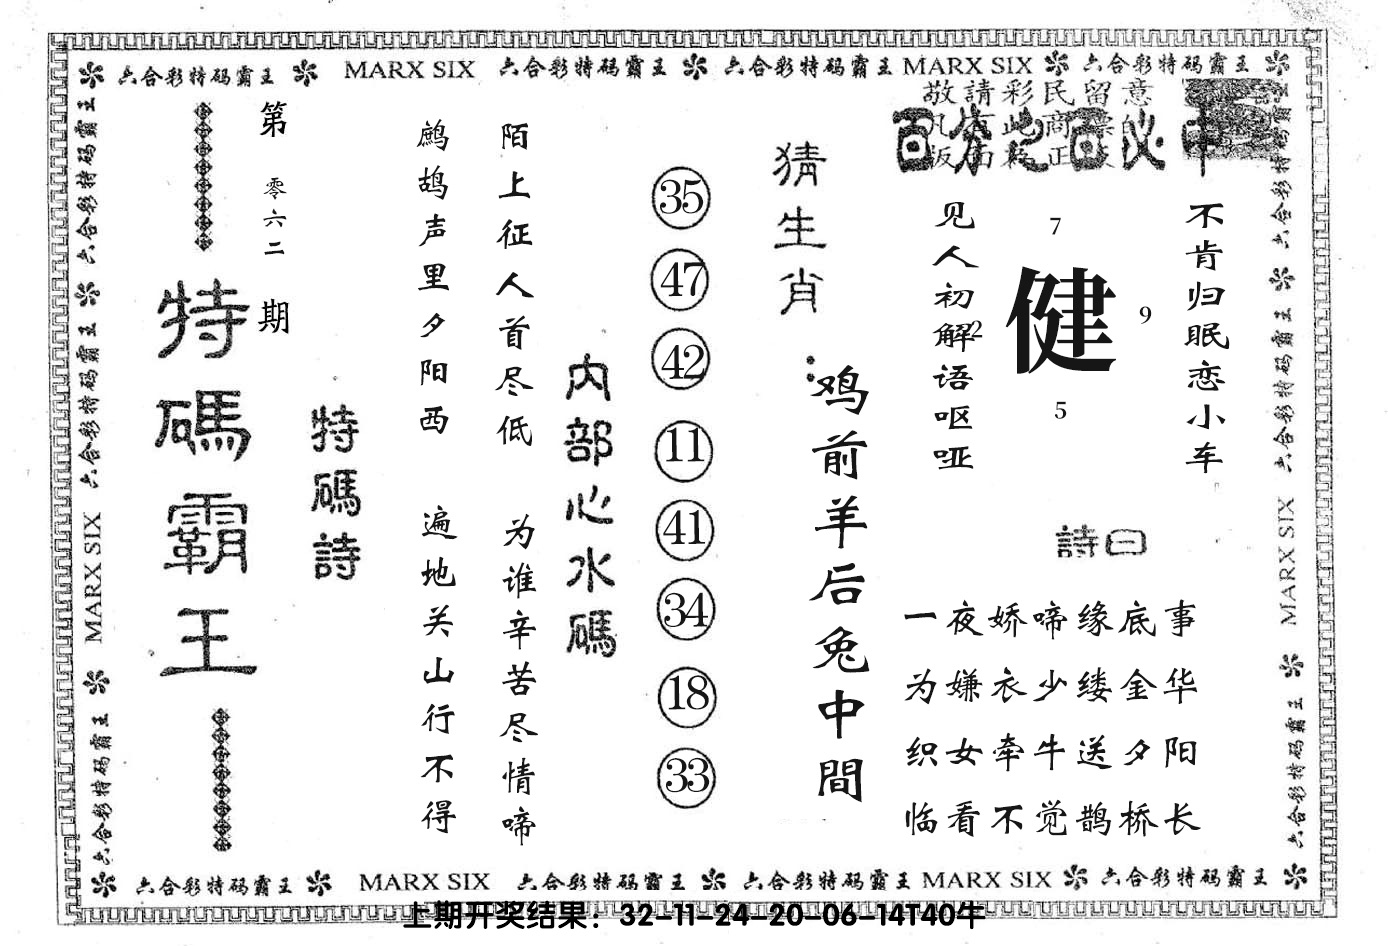 六合彩特码霸王 MARX SIX 六合彩特码霸王 六合彩特码霸王 MARX SIX 六合彩特码霸王
敬請彩民留意
百分之百必中
不肯归眠恋小车
7
健
9
2
5
见人初解语呕哑
詩曰
一夜娇啼缘底事
为嫌衣少缕金华
织女牵牛送夕阳
临看不觉鹊桥长
猜生肖：
鸡前羊后兔中間
35
47
42
11
41
34
18
33
内部心水碼
陌上征人首尽低 为谁辛苦尽情啼
鹧鸪声里夕阳西 遍地关山行不得
特碼詩
第零六二期
特碼霸王
六合彩特码霸王 六合彩特码霸王 MARX SIX 六合彩特码霸王
六合彩特码霸王 六合彩特码霸王 MARX SIX 六合彩特码霸王
六合彩特码霸王 MARX SIX 六合彩特码霸王 六合彩特码霸王 MARX SIX 六合彩特码霸王
上期开奖结果：32-11-24-20-06-14T40牛